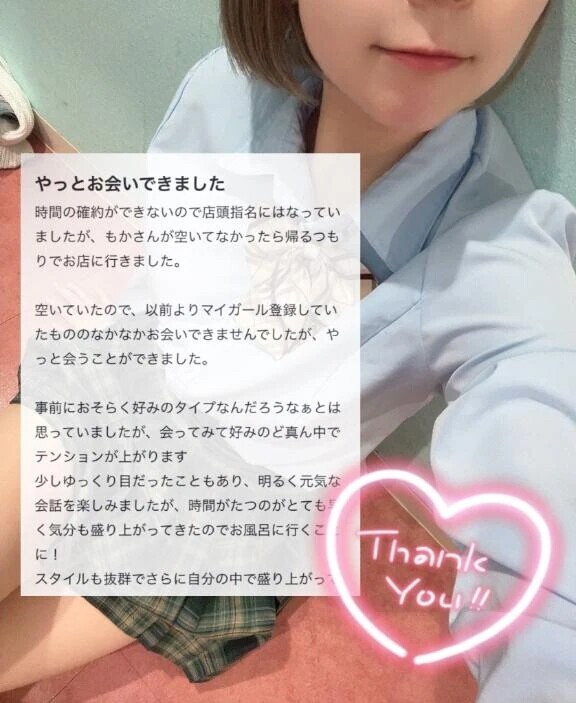 やっとお会いできました
時間の確約ができないので店頭指名にはなってい
ましたが、もかさんが空いてなかったら帰るつも
りでお店に行きました。
空いていたので、以前よりマイガール登録してい
たもののなかなかお会いできませんでしたが、や
っと会うことができました。
事前におそらく好みのタイプなんだろうなぁとは
思っていましたが、会ってみて好みのど真ん中で
テンションが上がります
少しゆっくり目だったこともあり、明るく元気な
会話を楽しみましたが、時間がたつのがとても
く気分も盛り上がってきたのでお風呂に行くこ
に!
スタイルも抜群でさらに自分の中で盛り上がっ
Thank
You!!